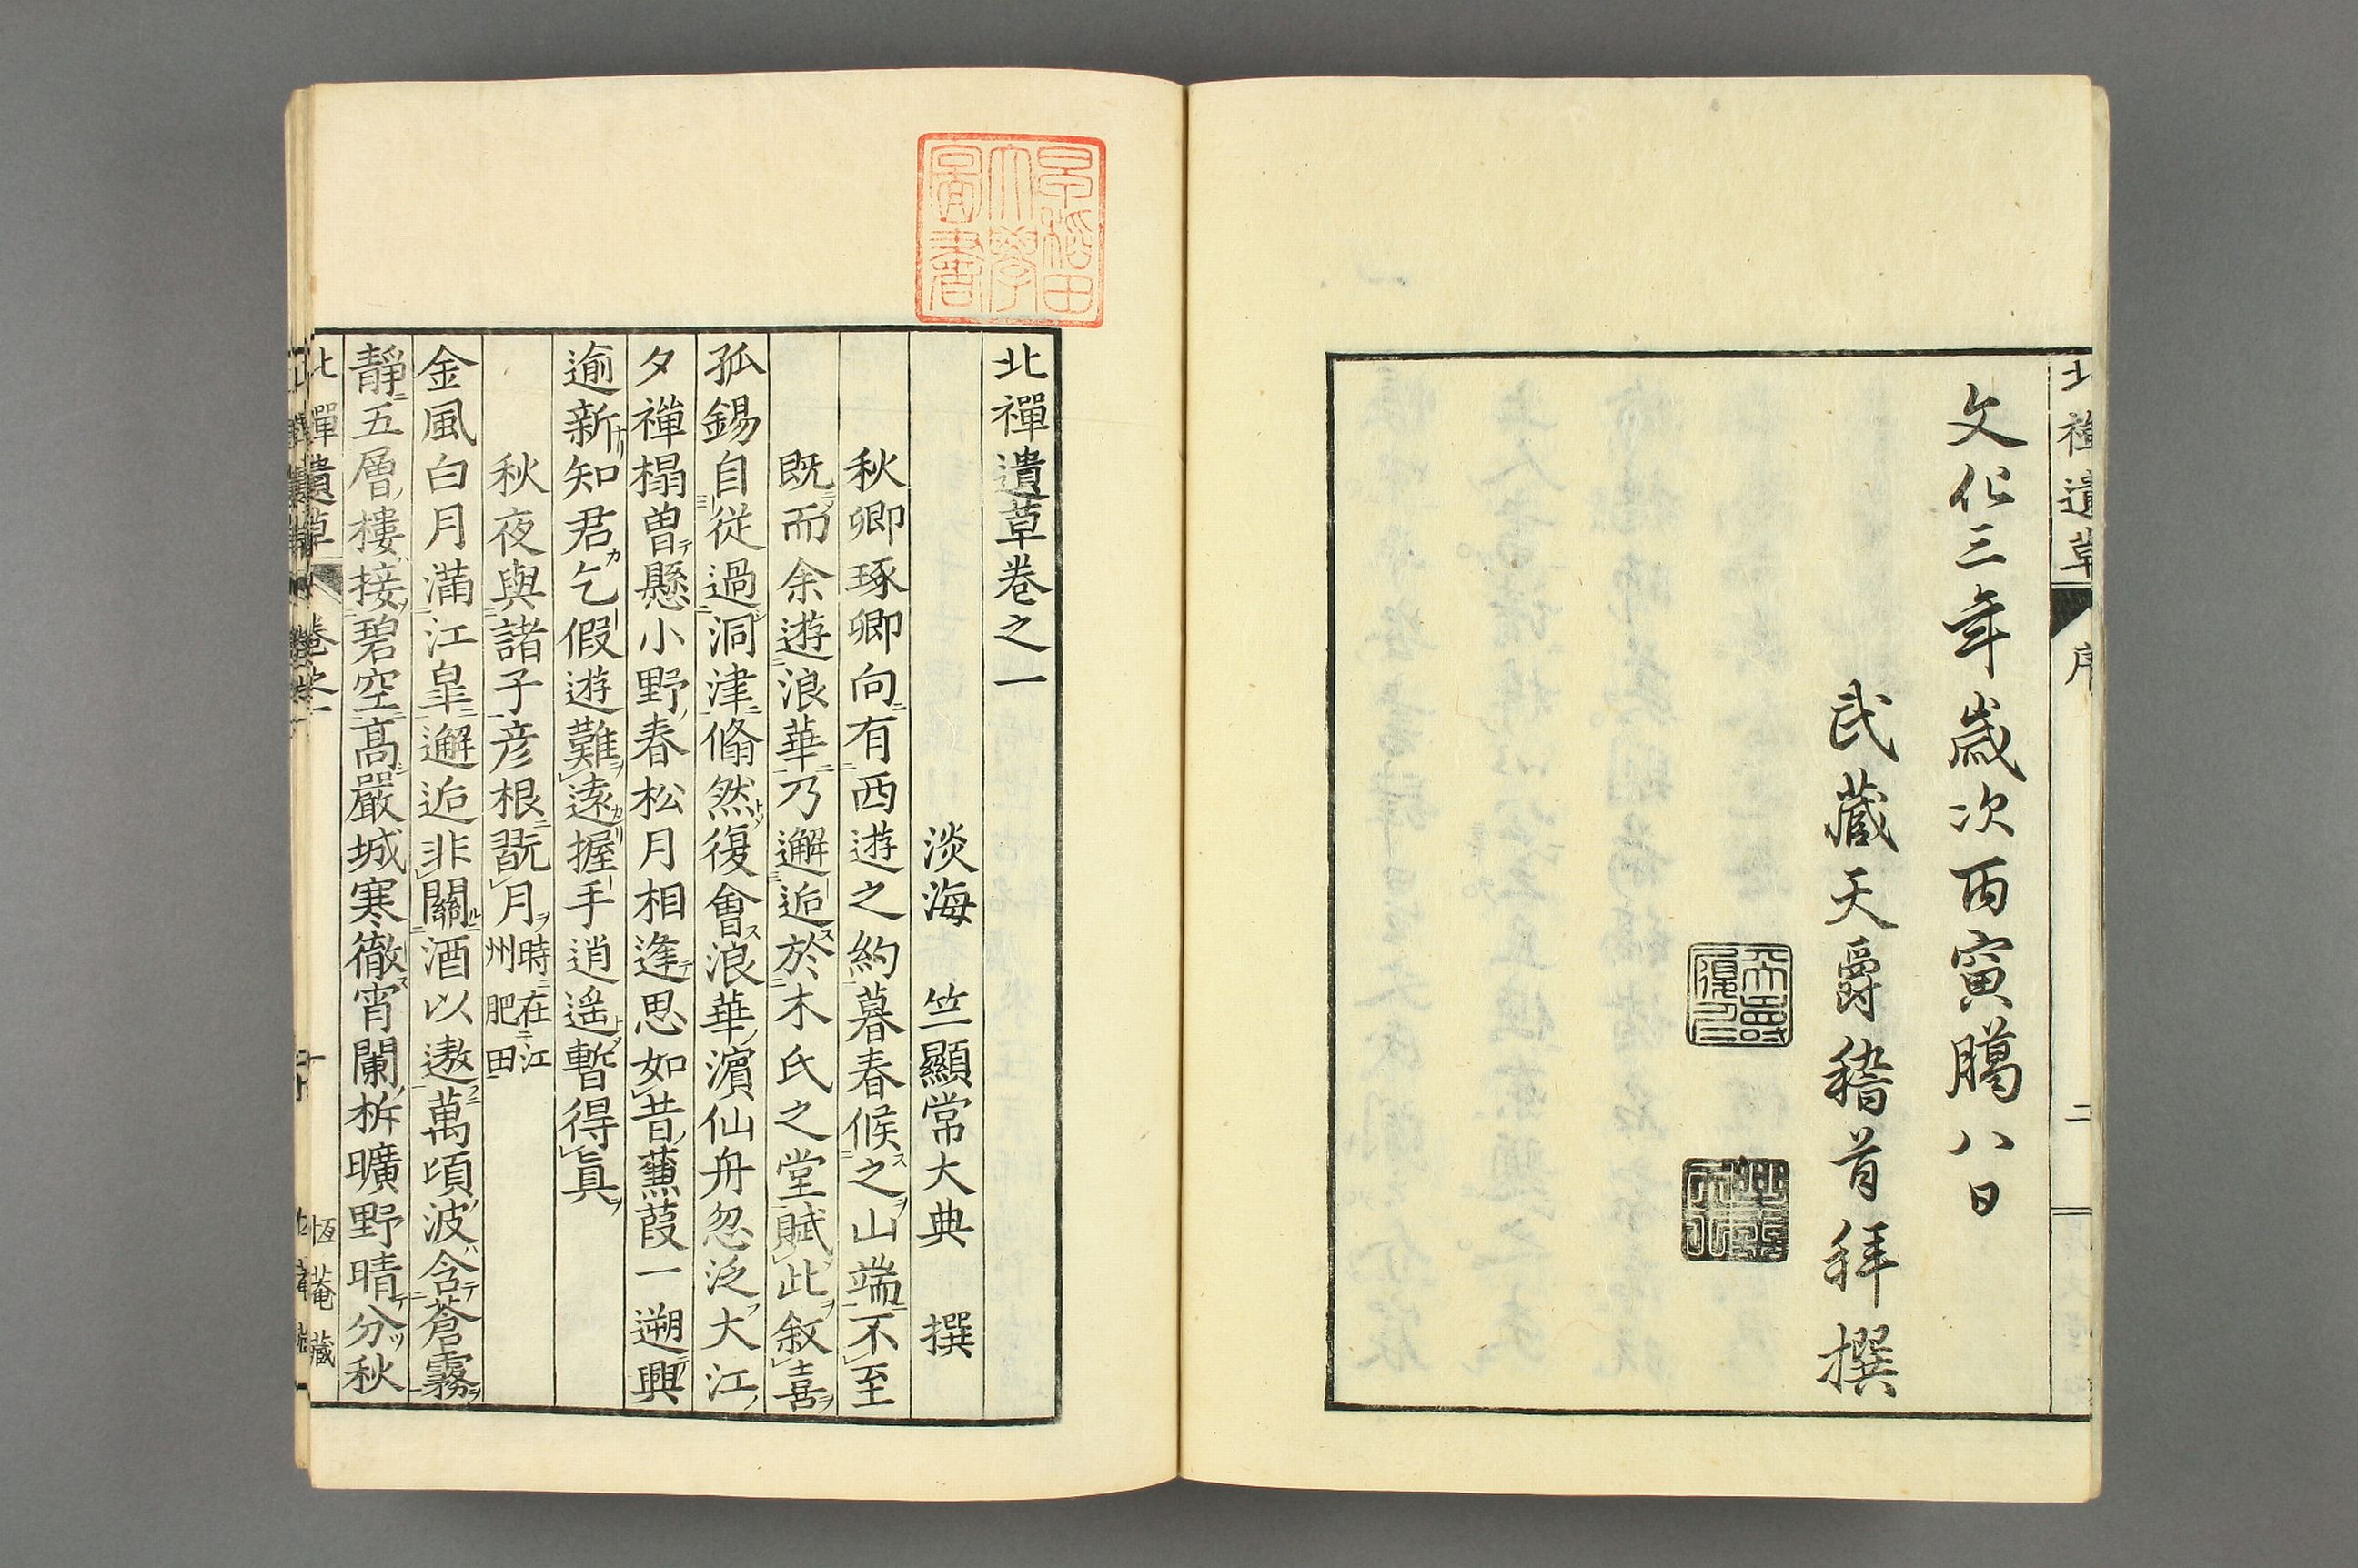 北禪遺草
序
二
文化三年歲次丙寅臈八日
武藏天爵稽首拜撰
早稲田大學圖書
北禪遺草卷之一
淡海 竺顯常大典 撰
秋卿琢卿向有西遊之約暮春候之山端不至
既而余遊浪華乃邂逅於木氏之堂賦此敘喜
孤錫自從過洞津翛然復會浪華濵仙舟忽泛大江
夕禪榻曽懸小野春松月相逢思如昔蒹葭一遡興
逾新知君乞假遊難遠握手逍遥暫得真
秋夜與諸子彦根翫月時在江州肥田
金風白月滿江皐邂逅非關酒以遨萬頃波含蒼霧
靜五層樓接碧空髙嚴城寒徹宵闌柝曠野晴分秋
北禪遺草
卷之一
一
恆菴藏